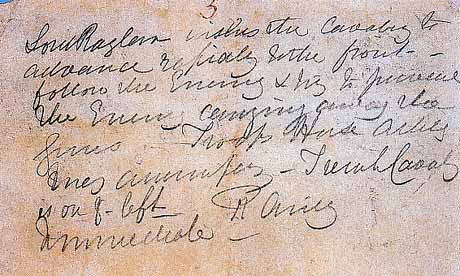 3
Lord Raglan wishes the Cavalry to
advance rapidly to the front -
follow the Enemy & try to prevent
the Enemy carrying away the
guns - Troop Horse Artily
may accompany - French Cavaly
is on yr left
Immediate - R Airey